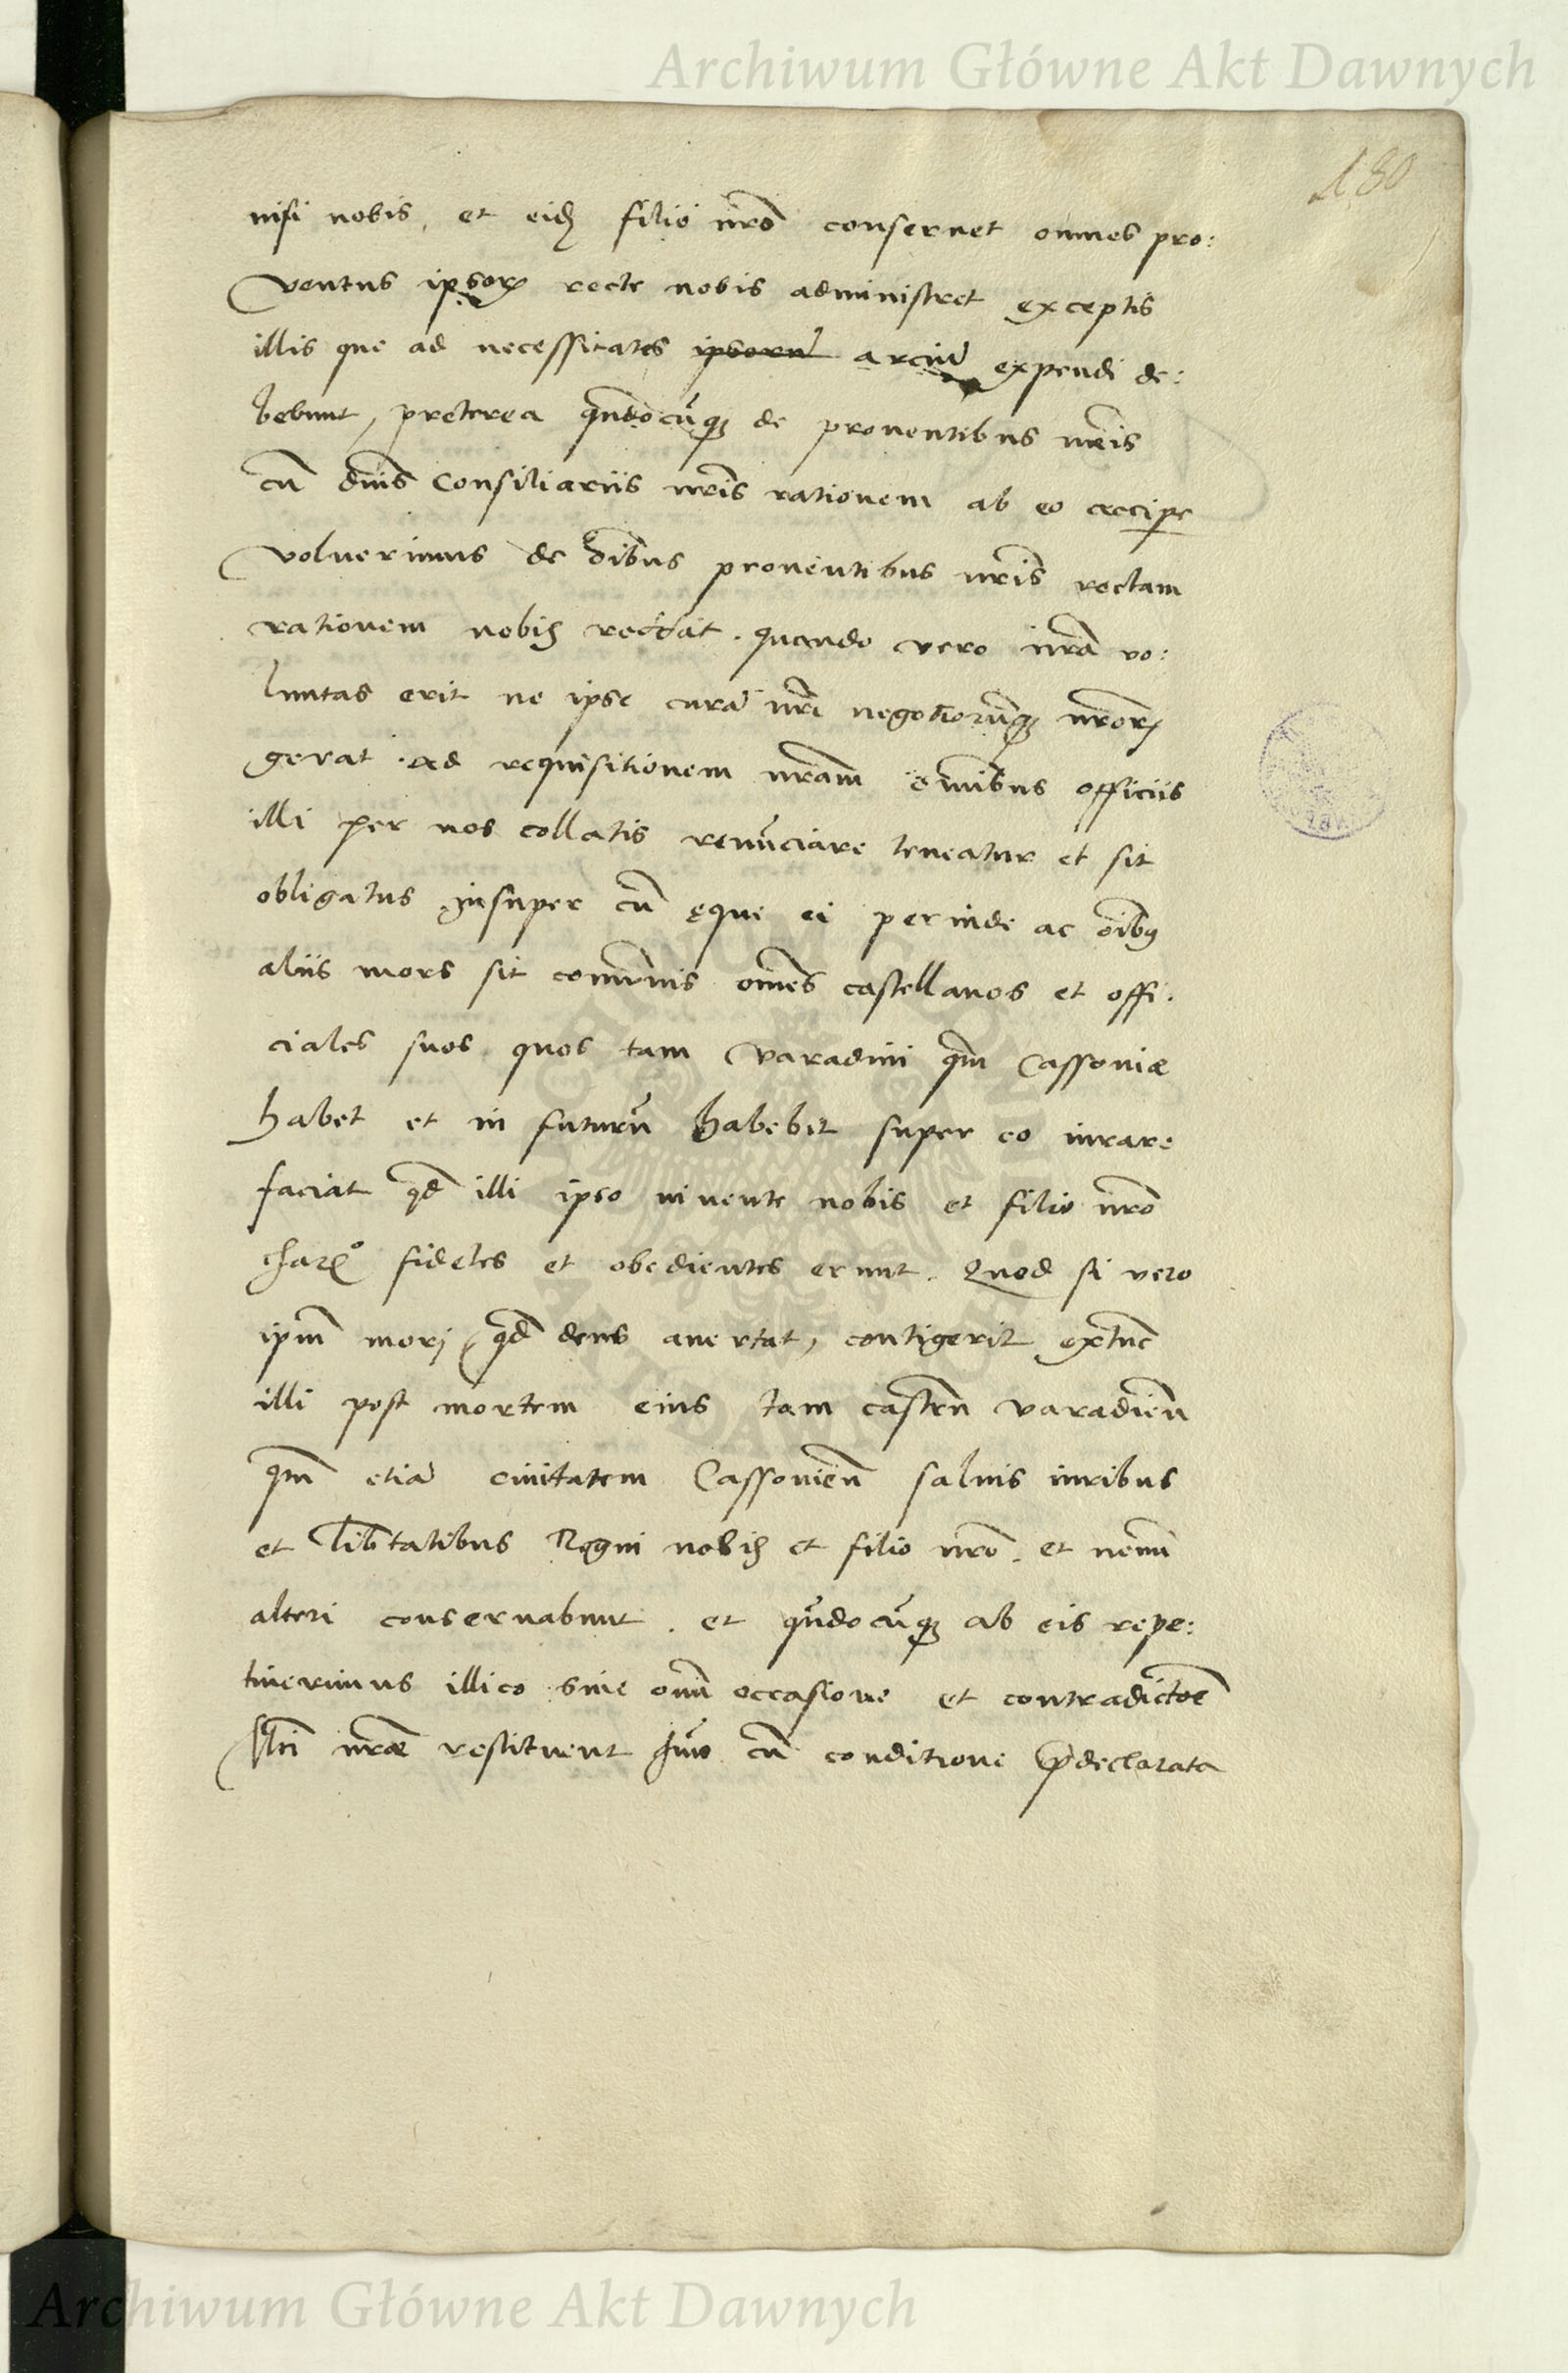 Archiwum Główne Akt Dawnych
180
nisi nobis, et eid filio nro conseruet omnes pro:
uentus ipsor recte nobis administret exceptis
illis que ad necessitates ipsoru arciu expendi de:
bebunt, preterea qndocuq de prouentibus nris
cu dnis Consiliariis nris rationem ab eo accipe
voluerimus de oibus prouentibus nris rectam
rationem nobis reddat. quando vero nra vo:
luntas erit ne ipse cura nri negotiorumq nror
gerat. ad requisitionem nram omnibus officiis
illi per nos collatis renunciare teneatur et sit
obligatus. Insuper cu eque ei perinde ac oibus
aliis mors sit comunis omes castellanos et offi:
ciales suos quos tam Varadini qm Cassoniæ
habet et in futuru habebit super eo iurare
faciat qd illi ipso viuente nobis et filio nro
charmo fideles et obedientes erunt. Quod si vero
ipm mori (qd deus auertat) contigerit extuc
illi post mortem eius tam castrn varadien
qm etia ciuitatem Cassouien saluis iuribus
et libtatibus Regni nobis et filio nro. et nemini
alteri conseruabunt. et qndocuq ab eis repe:
tiuerimus illico sine omi occasione et contradictoe
Mti nræ restituent cu conditione pdeclarata
Archiwum Główne Akt Dawnych